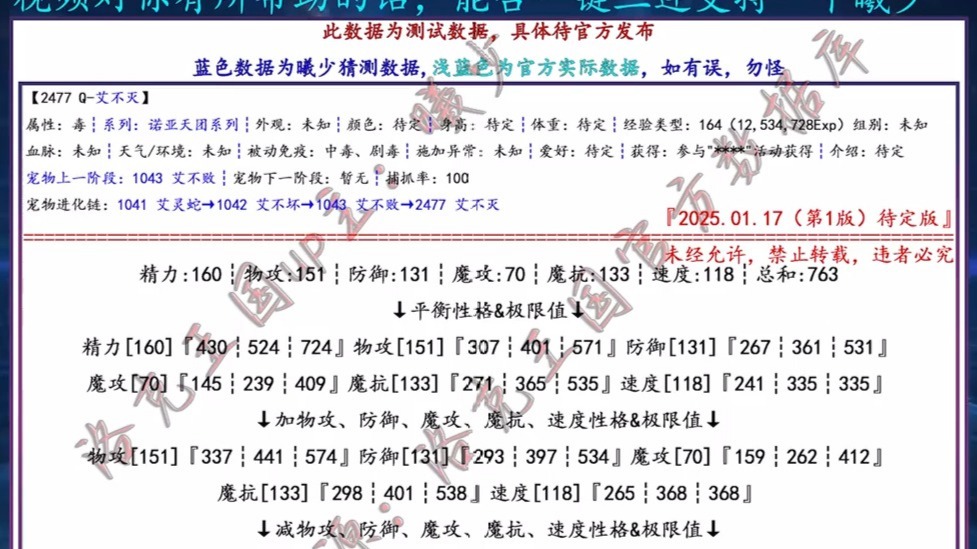 视频对你有所帮助的话，能否一键三连支持一下曦少
此数据为测试数据，具体待官方发布
蓝色数据为曦少猜测数据,浅蓝色为官方实际数据，如有误，勿怪
【2477 Q-艾不灭】
属性：毒┆系列：诺亚天团系列┆外观：未知┆颜色：待定┆身高：待定┆体重：待定┆经验类型：164（12,534,728Exp）组别：未知
血脉：未知┆天气/环境：未知┆被动免疫：中毒、剧毒┆施加异常：未知┆爱好：待定┆获得：参与"****"活动获得┆介绍：待定
宠物上一阶段：1043 艾不败┆宠物下一阶段：暂无┆捕抓率：100
宠物进化链：1041 艾灵蛇→1042 艾不坏→1043 艾不败→2477 艾不灭
『2025.01.17（第1版）待定版』
未经允许，禁止转载，违者必究
精力:160┆物攻:151┆防御:131┆魔攻:70┆魔抗:133┆速度:118┆总和:763
↓平衡性格&极限值↓
精力[160]『430┆524┆724』物攻[151]『307┆401┆571』防御[131]『267┆361┆531』
魔攻[70]『145┆239┆409』魔抗[133]『271┆365┆535』速度[118]『241┆335┆335』
↓加物攻、防御、魔攻、魔抗、速度性格&极限值↓
物攻[151]『337┆441┆574』防御[131]『293┆397┆534』魔攻[70]『159┆262┆412』
魔抗[133]『298┆401┆538』速度[118]『265┆368┆368』
↓减物攻、防御、魔攻、魔抗、速度性格&极限值↓
洛克王国UP主：曦少
源：洛克王国官方数据库